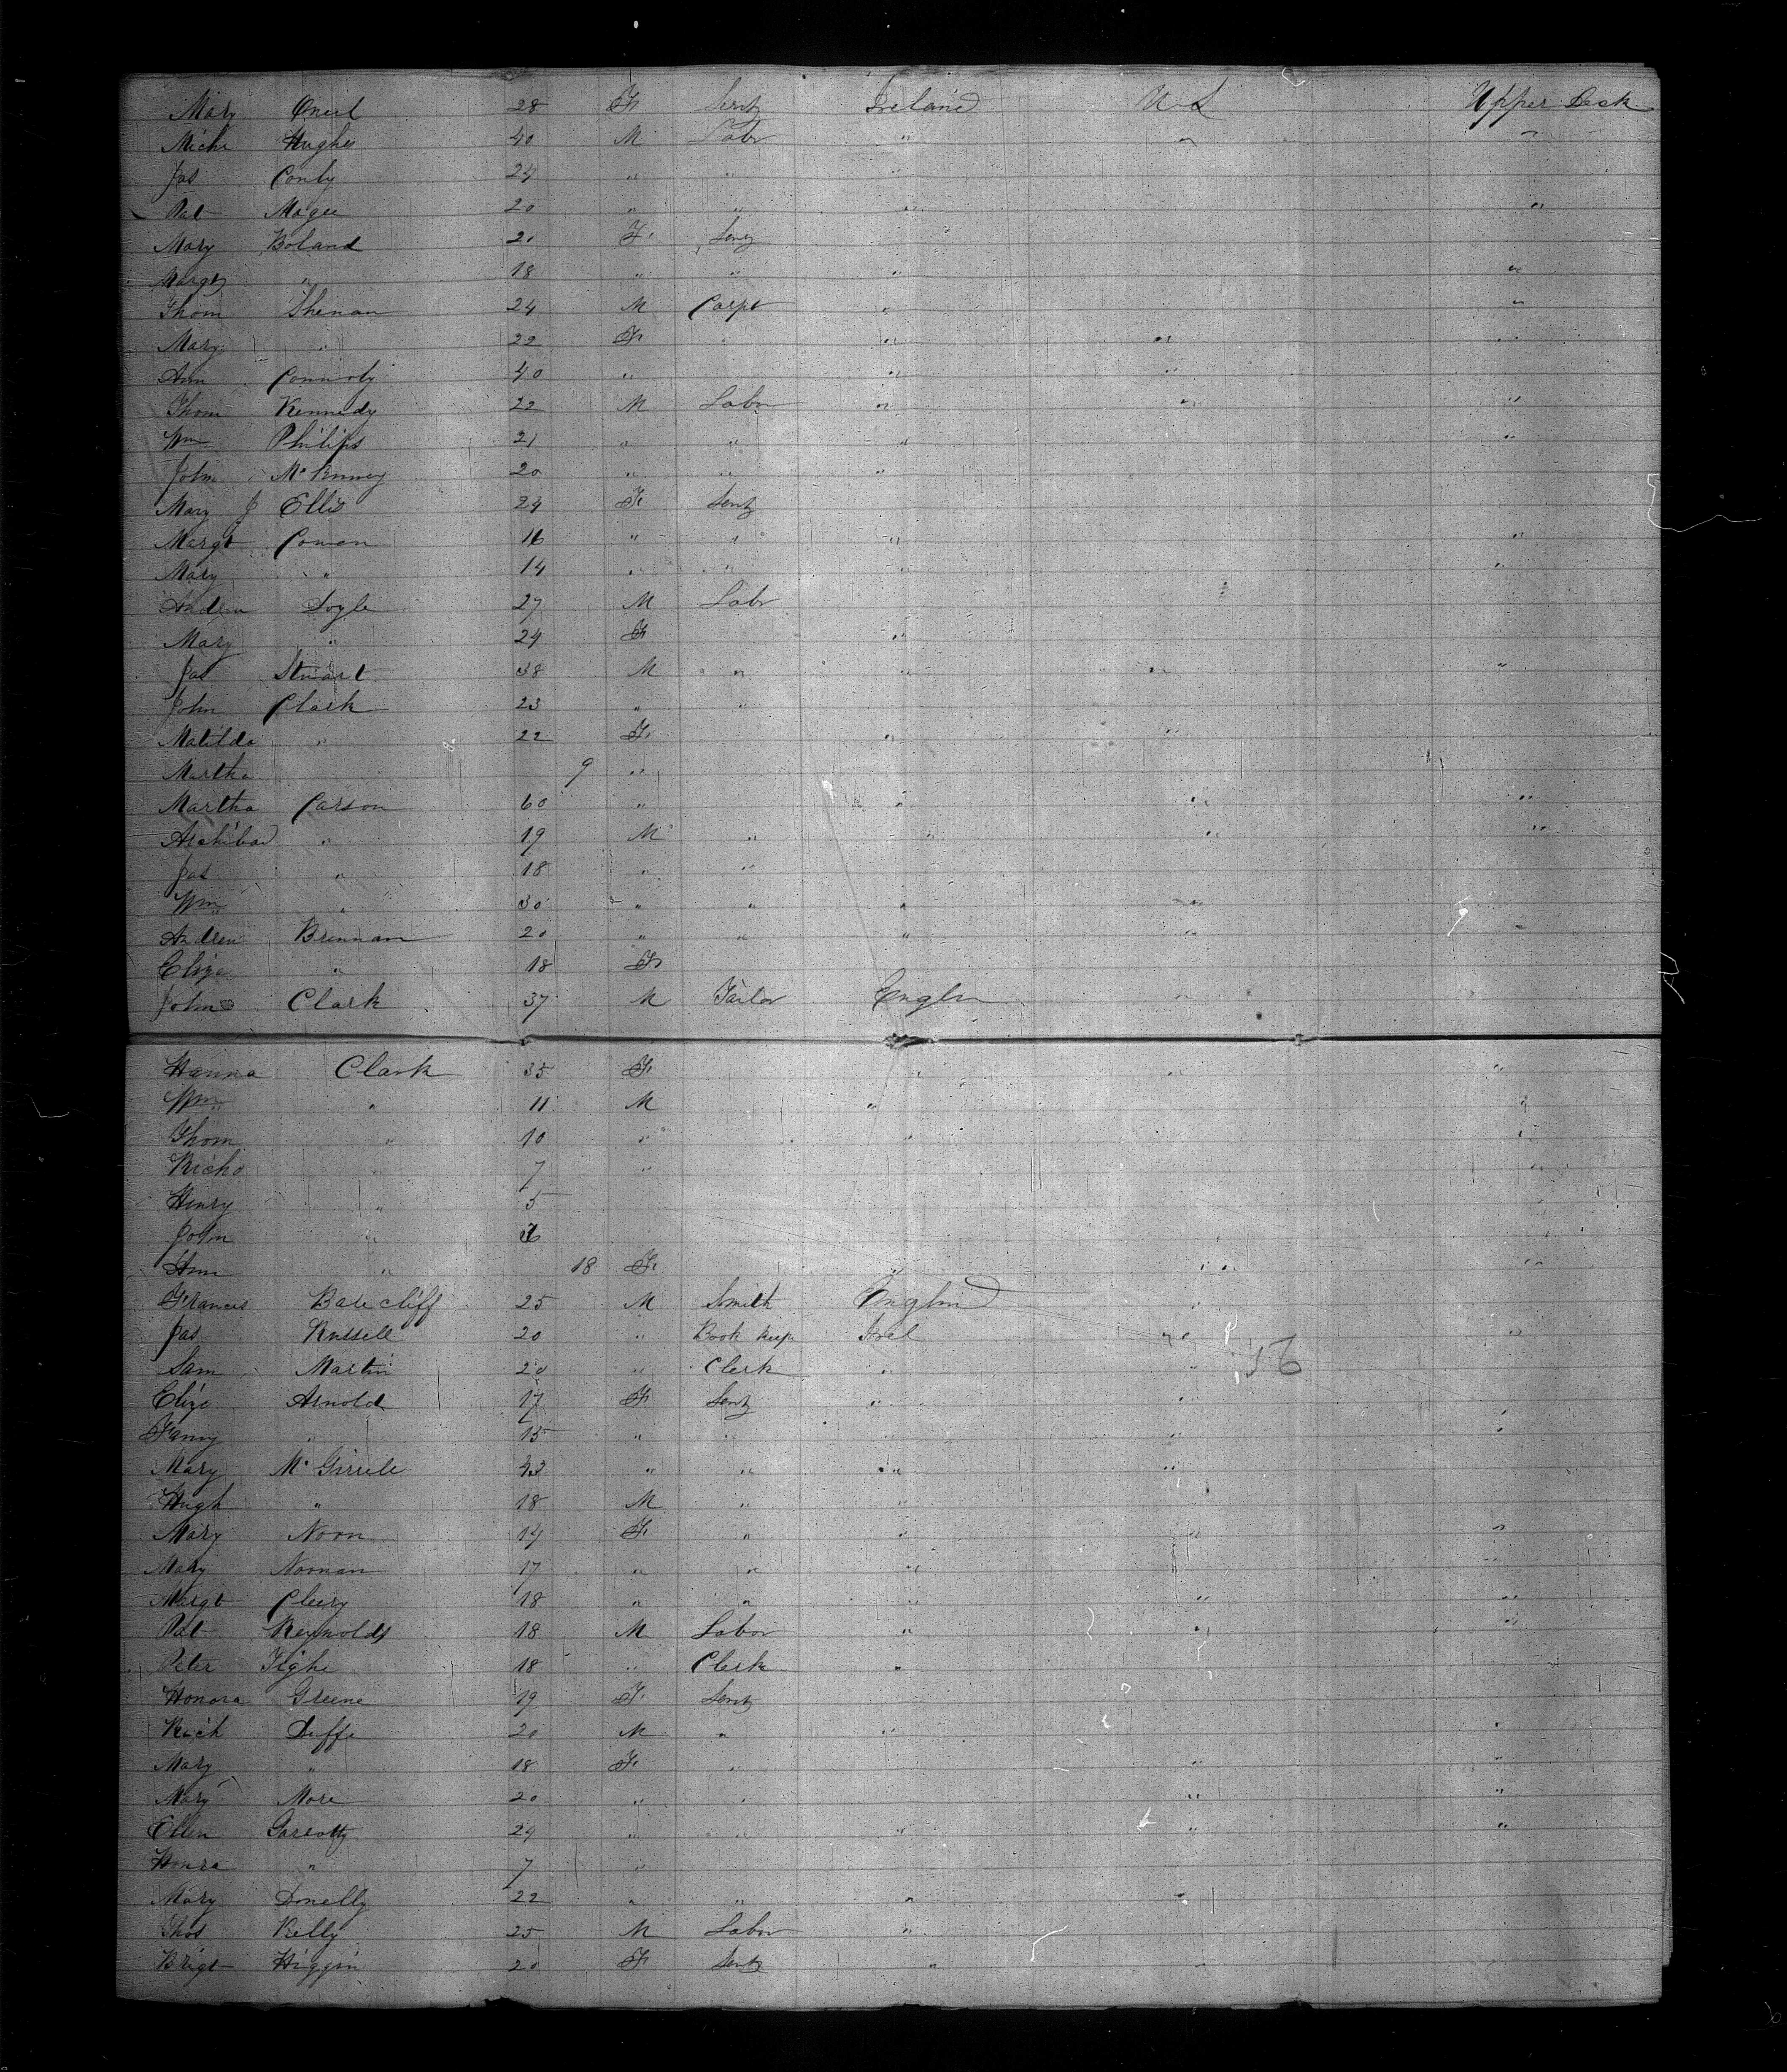 Mary Oneil 28 F Servt Ireland U S Upper Deck
Michl Hughes 40 M Labr " " "
Jas Conly 24 " " "
Pat Magee 20 " " " "
Mary Boland 21 F. Servt
Margt " 18 " " " "
Thom Shenan 24 M Carpt " "
Mary " 22 F " " "
Ann Connoly 40 " " "
Thom Kennedy 22 M Labor " " "
Wm Philips 21 " " " "
John McKinney 20 " " "
Mary J Ellis 24 F Servt
Margt Cowan 16 " " " "
Mary " 14 " " " "
Andrew Doyle 27 M Labr
Mary " 24 F "
Jas Stuart 38 M " " " "
John Clark 23 " "
Matilda " 22 F. " "
Martha 9 "
Martha Carson 60 " " " "
Archibad " 19 M " " " "
Jas " 18 " "
Wm " 30 " " " "
Andrew Brennan 20 " " " " "
Eliza " 18 F
John Clark 37 M Tailor Engln "
Hanna Clark 35 F. " " "
Wm " 11 M " "
Thom " 10 " " "
Richd " 7 " "
Henry " 5
John "
Ann " 18 F. " " "
Francis Batecliff 25 M Smith England
Jas Russell 20 " Book keep Irel " "
Sam Martin 20 " Clerk "
Eliza Arnold 17 F Servt " "
Fanny " 15 " " " " "
Mary McGirrele 43 " " " "
Hugh " 18 M " "
Mary Noon 14 F. " " " "
Mary Noonan 17 " " " "
Margt Cleery 18 " " " " "
Pat Reynolds 18 M Labor " " "
Peter Tighe 18 " Clerk "
Honora Greene 19 F. Servt
Rich Duffe 20 M " " "
Mary " 18 F. " " "
Mary More 20 " " " "
Ellen Garrotty 24 " " " " "
Honra " 7 "
Mary Donelly 22 " " " "
Thos Kelly 25 M Labor "
Brigt Higgin 20 F Servt "